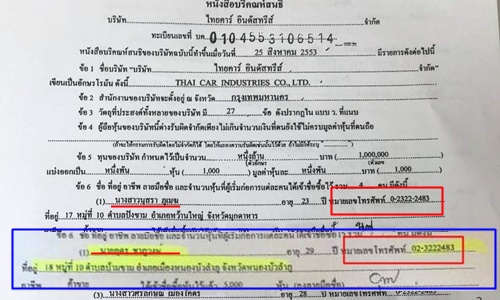 หนังสือบริคณห์สนธิ
บริษัท ไทยคาร์ อินดัสทรีส์ จำกัด
ทะเบียนเลขที่ บค. 0104553106514
หนังสือบริคณห์สนธิของบริษัทฉบับนี้ทำขึ้นเมื่อวันที่ 25 สิงหาคม 2553 มีรายการดังต่อไปนี้
ข้อ 1 ชื่อบริษัท "บริษัท ไทยคาร์ อินดัสทรีส์ จำกัด
เขียนเป็นอักษรโรมัน ดังนี้ THAI CAR INDUSTRIES CO., LTD.
ข้อ 2 สำนักงานของบริษัทจะตั้งอยู่ ณ จังหวัด กรุงเทพมหานคร
ข้อ 3 วัตถุที่ประสงค์ทั้งหลายของบริษัท มี 27 ข้อ ดังปรากฏใน แบบ ว. ที่แนบ
ข้อ 4 ผู้ถือหุ้นของบริษัทนี้ต่างรับผิดจำกัดเพียงไม่เกินจำนวนเงินที่ตนยังใช้ไม่ครบมูลค่าหุ้นที่ตนถือ
ข้อ 5 ทุนของบริษัท กำหนดไว้เป็นจำนวน หนึ่งล้าน บาท ( 1,000,000 )
แบ่งออกเป็น หนึ่งพัน หุ้น ( 1,000 ) มูลค่าหุ้นละ หนึ่งพัน บาท ( 1,000 )
ข้อ 6 ชื่อ ที่อยู่ อาชีพ ลายมือชื่อ และจำนวนหุ้นที่ผู้เริ่มก่อการแต่ละคนได้เข้าชื่อซื้อไว้ รวม 4 คน มีดังนี้
(1) นางสาวนุสรา อายุ 23 ปี หมายเลขโทรศัพท์ 0-2322-2483
ที่อยู่ 17 หมู่ที่ 10 ตำบลป่งขาม อำเภอหว้านใหญ่ จังหวัดมุกดาหาร
ข้อ 6 ชื่อ ที่อยู่ อาชีพ ลายมือชื่อ และจำนวนหุ้นที่ผู้เริ่มก่อการแต่ละคนได้เข้าชื่อซื้อไว้
(1) อายุ 29 ปี หมายเลขโทรศัพท์ 02-3222483
ที่อยู่ 18 หมู่ที่ 10 ตำบลบ้านขาม อำเภอเมืองหนองบัวลำภู จังหวัดหนองบัวลำภู
อาชีพ ค้าขาย ได้เข้าชื่อซื้อหุ้นไว้ 5,000 หุ้น (ลงลายมือชื่อ)